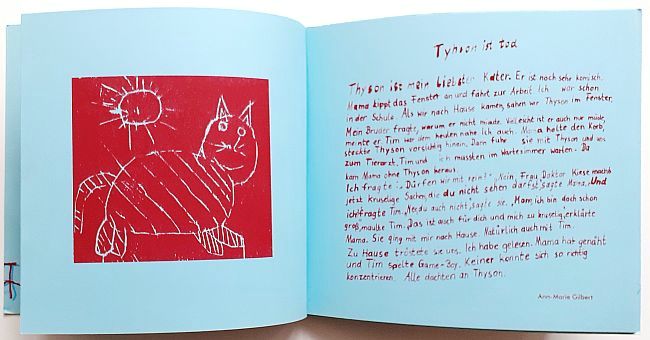 Tyhson ist tod
Thyson ist mein liebster Kater. Er ist noch sehr komisch.
Mama kippt das Fenster an und fährt zur Arbeit. Ich war schon
in der Schule. Als wir nach Hause kamen, sahen wir Thyson im Fenster.
Mein Bruder fragte, warum er nicht miaute. Vielleicht ist er auch nur müde,
meinte er Tim war dem heulen nahe Ich auch. Mama holte den Korb,
steckte Thyson vorsichtig hinein. Dann fuhr sie mit Thyson und uns
zum Tierarzt, Tim und ich mussten im Wartezimmer warten. Da
kam Mama ohne Thyson heraus.
Ich fragte: „Dürfen wir mit rein?" „Nein, Frau Doktor Kiese macht
jetzt Kruselige Sachen, die du nicht sehen darfst", sagte Mama. „Und
ich?" fragte Tim. „Nee, du auch nicht", sagte sie. „Mam, ich bin doch schon
groß", maulte Tim. „Das ist auch für dich und mich zu kruselig", erklärte
Mama. Sie ging mit mir nach Hause. Natürlich auch mit Tim.
Zu Hause tröstete sie uns. Ich habe gelesen. Mama hat genäht
und Tim spielte Game-Boy. Keiner konnte sich so richtig
konzentrieren. Alle dachten an Thyson.
Ann-Marie Gilbert